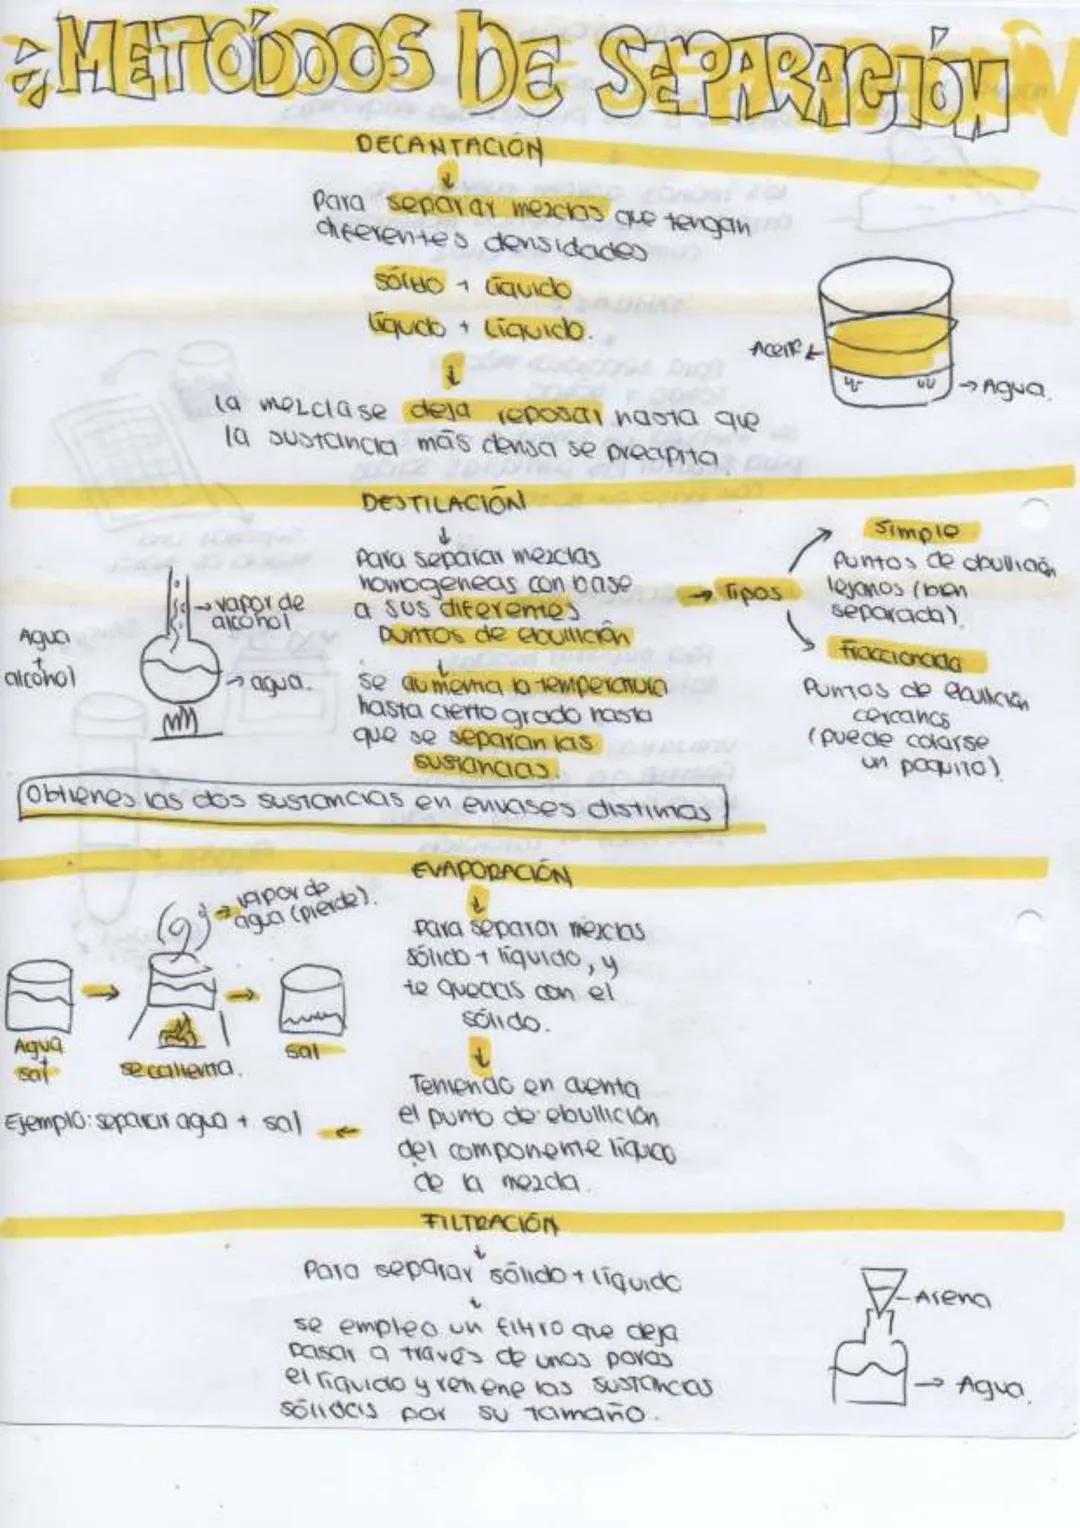 METÓDOS DE SEPARACIÓN
DECANTACIÓN
Para separar mezclas que tengan
diferentes densidades
sólido + líquido
líquido + líquido.
la mezcla se deja reposar hasta que
la sustancia más densa se precipita
Aceite
Agua.
DESTILACIÓN
Para separar mezclas
homogeneas con base
a sus diferentes
puntos de ebullición
se aumenta la temperatura
hasta cierto grado hasta
que se separan las
sustancias.
Agua
+
alcohol
vapor de
alcohol
agua.
Tipos
Simple
Puntos de ebullición
lejanos (bien
separada).
Fraccionada
Puntos de ebullición
cercanos
(puede colarse
un poquito).
Obtienes las dos sustancias en envases distintos
EVAPORACIÓN
Para separar mezclas
sólido + líquido, y
te quedas con el
sólido.
Teniendo en cuenta
el punto de ebullición
del componente líquido
de la mezcla.
vapor de
agua (pierde).
Agua
+
sal
se calienta.
sal
Ejemplo: separar agua + sal
FILTRACIÓN
Para separar sólido + líquido
se empleo un filtro que deja
pasar a través de unos poros
el líquido y retiene las sustancias
sólidas por su tamaño.
Arena
Agua.